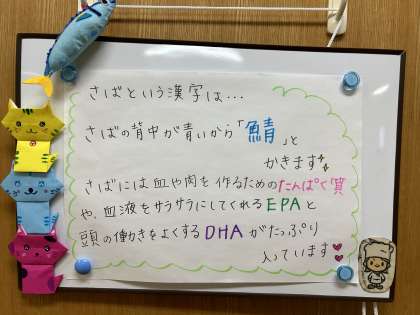 さばという漢字は…
さばの背中が青いから「鯖」と
かきます
さばには血や肉を作るためのたんぱく質
や、血液をサラサラにしてくれるEPAと
頭の働きをよくするDHAがたっぷり
入っています